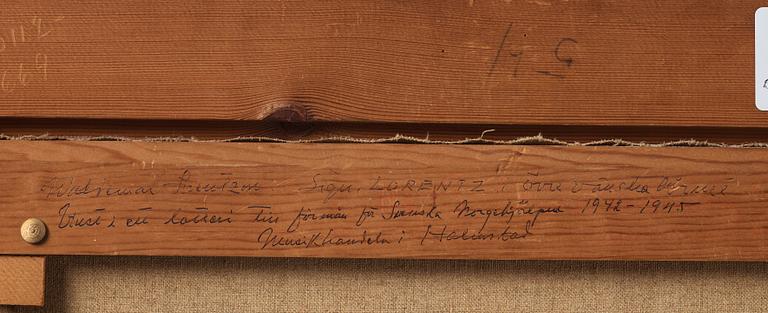 1112
669
Waldemar Lorentzon Sign. LORENTZ i övre vänstra hörnet
Vinst i ett lotteri till förmån för Svenska Norgehjälpen 1942-1945
Musikhandeln i Halmstad